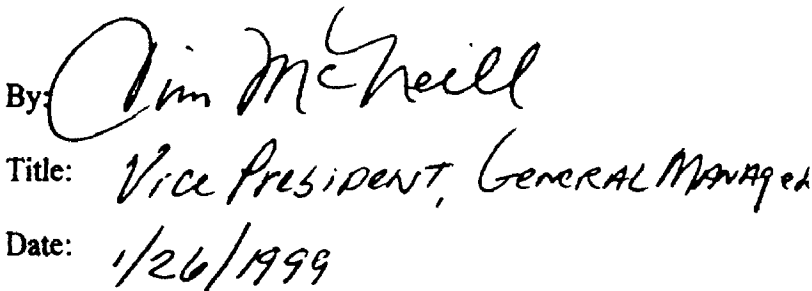 By: Jim McNeill
Title: Vice President, General Manager
Date: 1/26/1999